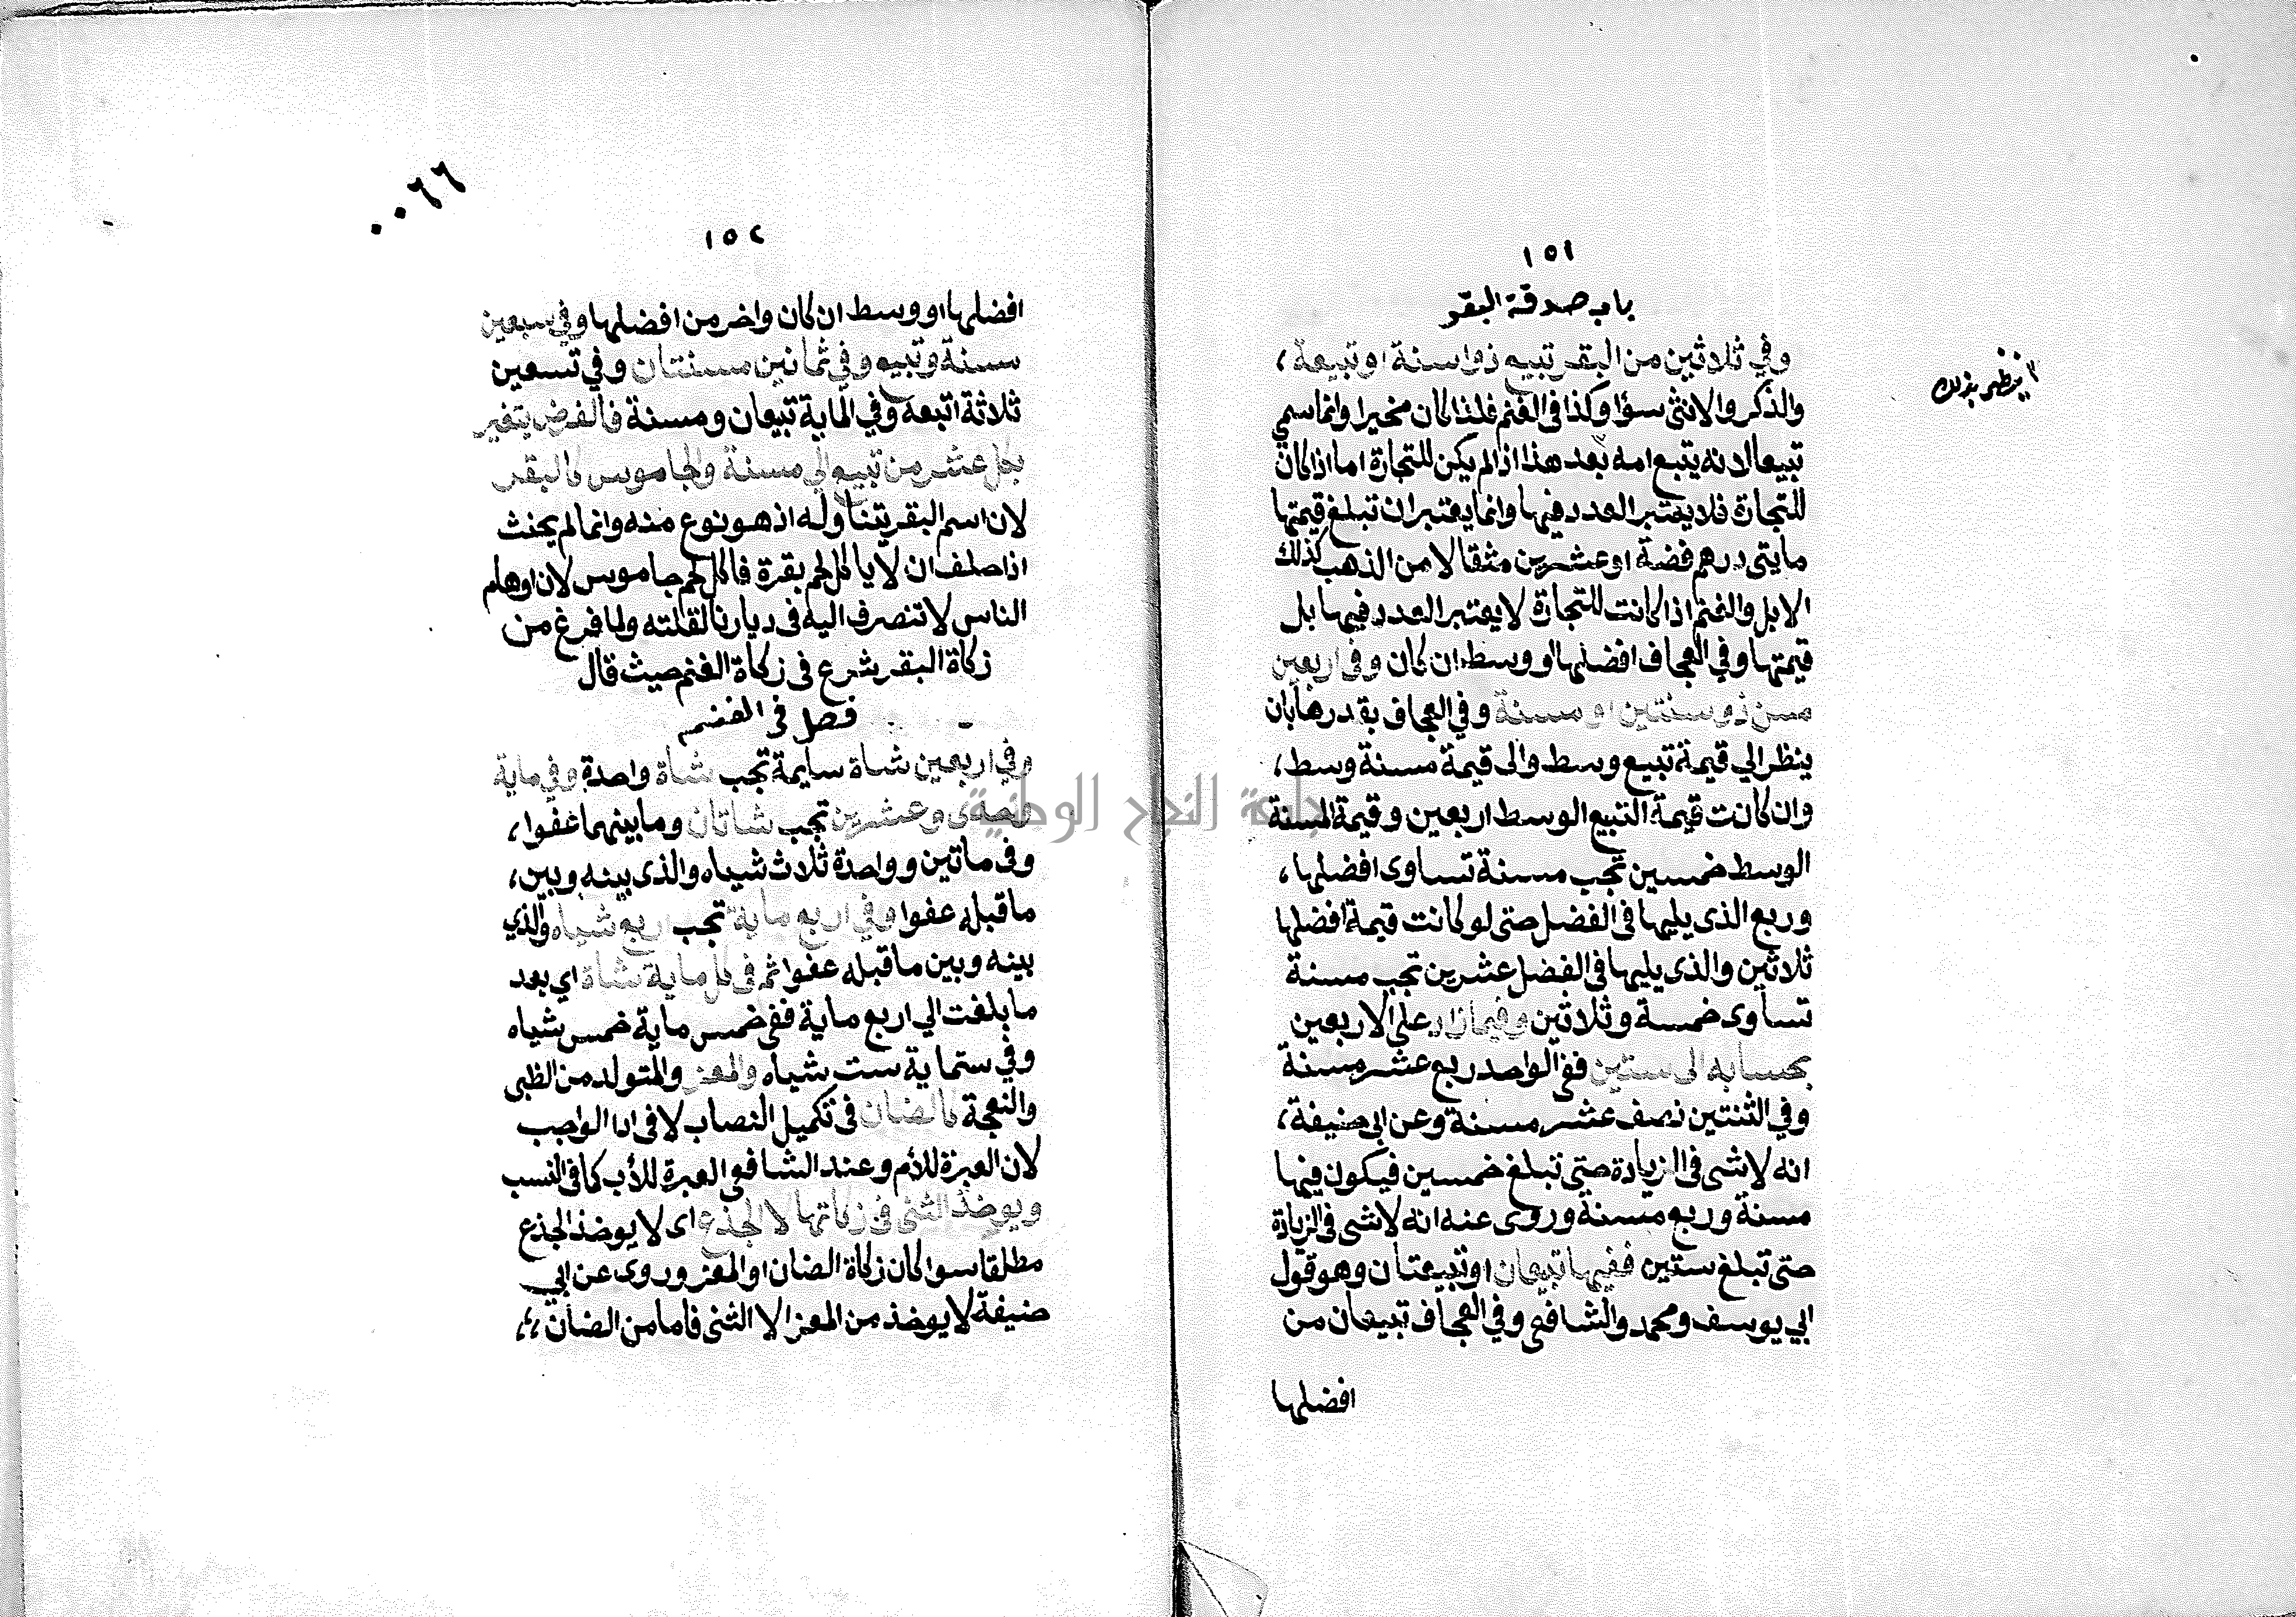 ١٥١
باب صدقة البقر
وفي ثلاثين من البقر تبيع ذوا سنة او تبيعة،
والذكر والانثى سوٓا وكذا فى الغنم فلذا كان مخيرا وانما سمي
تبيعا لانه يتبع امه بعد هذا اذا لم يكن للتجارة اما اذا كان
للتجارة فلا يعتبر العدد فيها وانما يعتبر ان تبلغ قيمتها
مايتى درهم فضة او عشرين مثقالا من الذهب كذلك
الابل والغنم اذا كانت للتجارة لا يعتبر العدد فيها بل
قيمتها وفي العجاف افضلها او وسط ان كان وفى اربعين
مسن ذو سنتين او مسنة وفي العجاف بقدرها بان
ينظر الي قيمة تبيع وسط والى قيمة مسنة وسط،
وان كانت قيمة التبيع الوسط اربعين وقيمة المسنة
الوسط خمسين تجب مسنة تساوى افضلها،
وربع الذى يليها فى الفضل حتى لو كانت قيمة افضلها
ثلاثين والذى يليها فى الفضل عشرين تجب مسنة
تساوى خمسة وثلاثين وفيما زاد على الاربعين
بحسابه الى ستين ففى الواحد ربع عشر مسنة
وفي الثنتين نصف عشر مسنة وعن ابى حنيفة،
انه لا شى فى الزيادة حتى تبلغ خمسين فيكون فيها
مسنة وربع مسنة وروى عنه انه لا شى فى الزيادة
حتى تبلغ ستين ففيها تبيعان او تبيعتان وهو قول
ابي يوسف ومحمد والشافعى وفي العجاف تبيعان من
افضلها
ينظر بذلك
٠٠٦٦
١٥٢
افضلها او وسط ان كان واخر من افضلها وفي سبعين
مسنة وتبيع وفي ثمانين مسنتان وفي تسعين
ثلاثة اتبعة وفي الماية تبيعان ومسنة فالفرض يتغير
بكل عشر من تبيع الي مسنة والجاموس كالبقر
لان اسم البقر يتناوله اذ هو نوع منه وانما لم يحنث
اذا حلف ان لا ياكل لحم بقرة فاكل لحم جاموس لان اوهام
الناس لا تنصرف اليه فى ديارنا لقلته ولما فرغ من
زكاة البقر شرع فى زكاة الغنم حيث قال
فصل فى الغنم
وفي اربعين شاة سايمة تجب شاة واحدة وفي ماية
واحدى وعشرين تجب شاتان وما بينهما عفوا،
وفى ماتين وواحدة ثلاث شياه والذى بينه وبين،
ما قبله عفوا وفي اربع ماية تجب اربع شياه والذي
بينه وبين ما قبله عفوا ثم فى كل ماية شاة اي بعد
ما بلغت الي اربع ماية ففى خمس ماية خمس شياه
وفي ستماية ست شياه والمعز والمتولد من الظبى
والنعجة كالضان فى تكميل النصاب لا فى ادا الواجب
لان العبرة للأم وعند الشافعى العبرة للأب كما فى النسب
ويوخذ الثنى فى زكاتها لا الجذع اى لا يوخذ الجذع
مطلقا سوا كان زكاة الضان او المعز وروى عن ابي
حنيفة لا يوخذ من المعز الا الثنى فاما من الضان،،
جامعة النجاح الوطنية